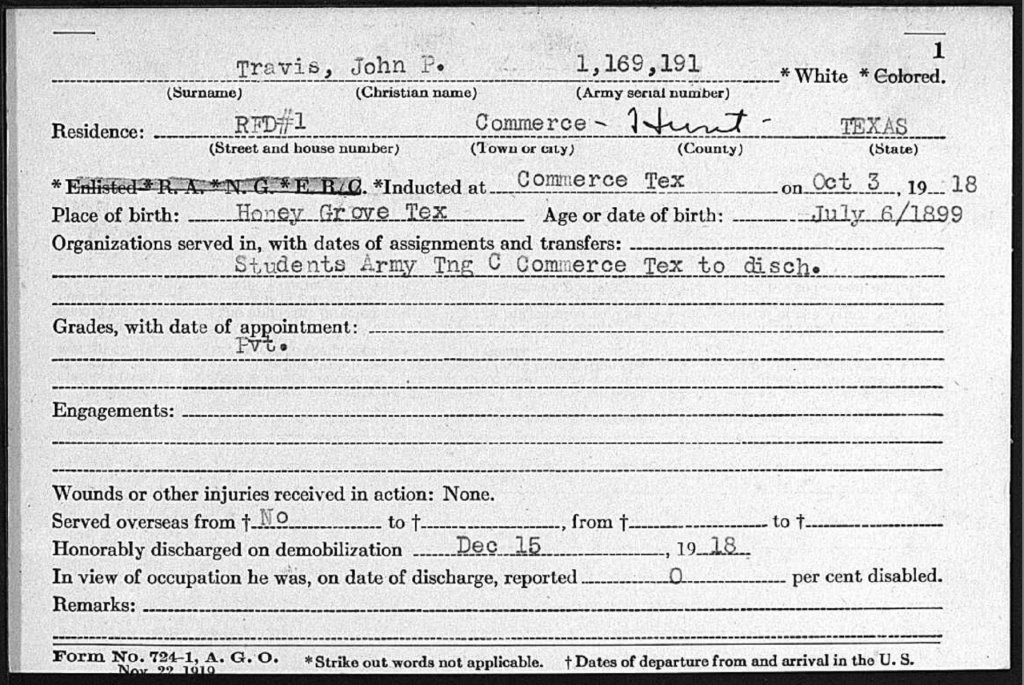 1
Travis, John P. 1,169,191 * White * Colored.
(Surname) (Christian name) (Army serial number)
Residence: RFD#1 Commerce - Hunt - TEXAS
(Street and house number) (Town or city) (County) (State)
* Enlisted * R. A. * N. G. * E. R. C. *Inducted at Commerce Tex on Oct 3, 1918
Place of birth: Honey Grove Tex Age or date of birth: July 6/1899
Organizations served in, with dates of assignments and transfers:
Students Army Tng C Commerce Tex to disch.
Grades, with date of appointment:
Pvt.
Engagements:
Wounds or other injuries received in action: None.
Served overseas from † No to †, from † to †
Honorably discharged on demobilization Dec 15, 1918
In view of occupation he was, on date of discharge, reported 0 per cent disabled.
Remarks:
Form No. 724-1, A. G. O. *Strike out words not applicable. †Dates of departure from and arrival in the U. S.
Nov. 22, 1919